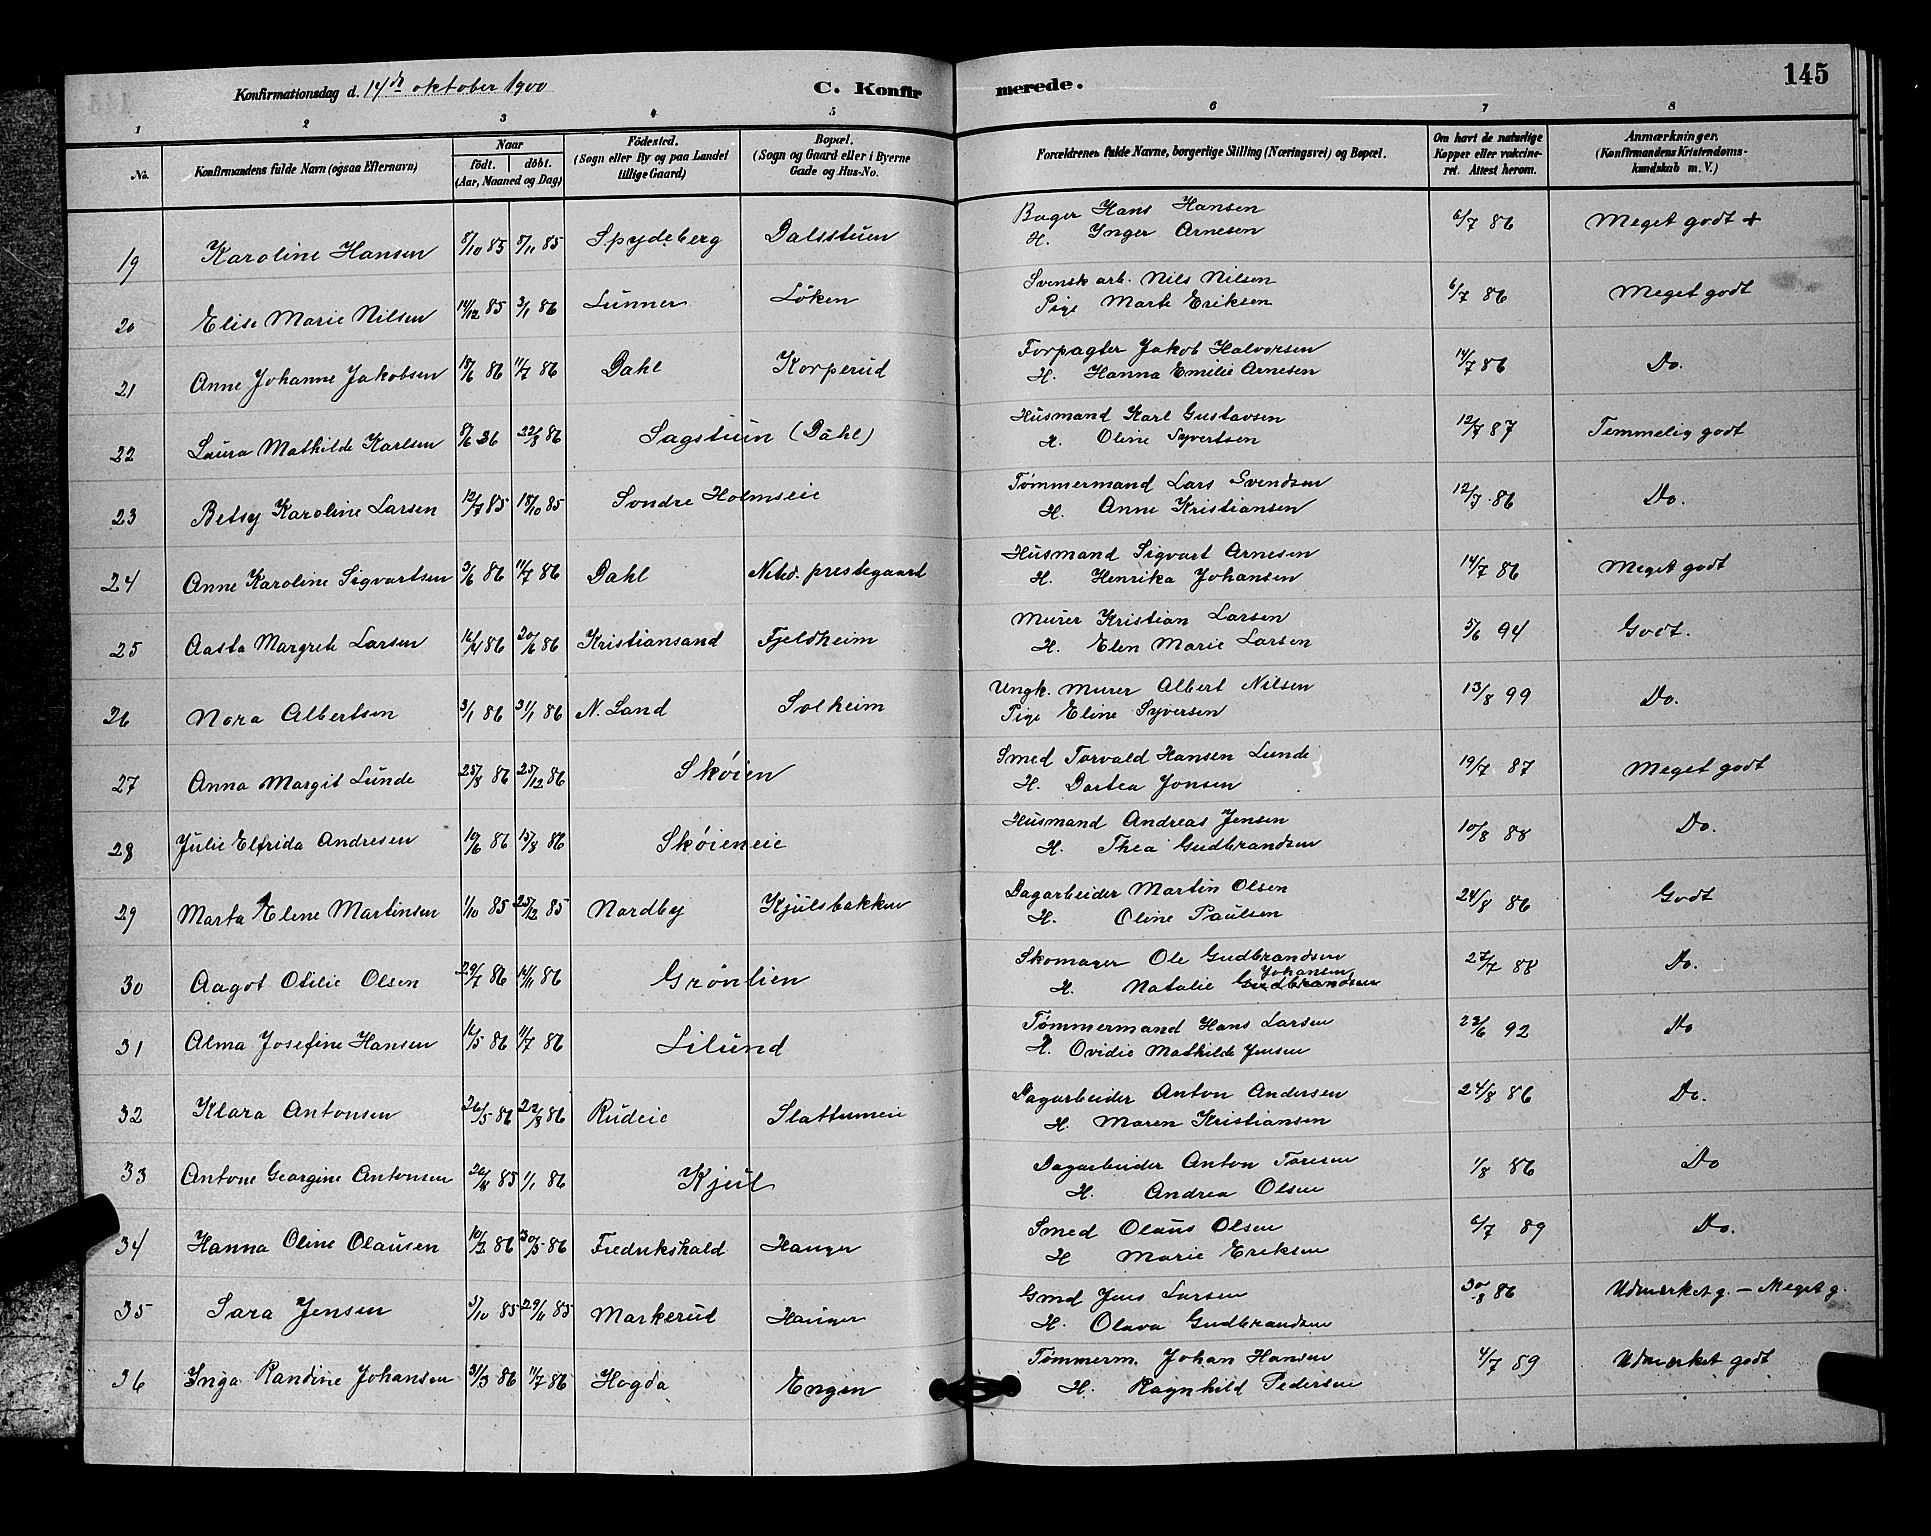 Konfirmationsdag d. 14de oktober 1900 C. Konfirmerede. 145
1 2 3 4 5 6 7 8
No. Konfirmandens fulde Navn (ogsaa Efternavn) Naar født. døbt. (Aar, Maaned og Dag) Fødested. (Sogn eller By og paa Landet tillige Gaard) Bopæl. (Sogn og Gaard eller i Byerne Gade og Hus-No. Forældrenes fulde Navne, borgerlige Stilling (Næringsvei) og Bopæl. Om havt de naturlige Kopper eller vakcineret. Attest herom. Anmærkninger. (Konfirmandens Kristendomskundskab m. V.)
19 Karoline Hansen 8/10 85 8/11 85 Spydeberg Dalsstuen Bager Hans Hansen 6/7 86 Meget godt +
H. Inger Arnesen
20 Elise Marie Nilsen 14/12 85 3/1 86 Lunner Löken Svensk arb. Nils Nilsen 6/7 86 Meget godt
Pige Marte Eriksen
21 Anne Johanne Jakobsen 18/6 86 11/7 86 Dahl Korperud Forpagter Jakob Halvorsen 14/7 86 Do.
H. Hanna Emelie Arnesen
22 Laura Mathilde Karlsen 8/6 86 22/8 86 Sagstuen (Dahl) Husmand Karl Gustavsen 12/7 87 Temmelig godt
H. Oline Syvertsen
23 Betsy Karoline Larsen 12/7 85 18/10 85 Sondre Holmseie Tømmermand Lars Svendsen 12/7 86 Do.
H. Anne Kristiansen
24 Anne Karoline Sigvartsen 3/6 86 11/7 86 Dahl Nited. prestegaard Husmand Sigvart Arnesen 14/7 86 Meget godt
H. Henrika Johansen
25 Aasta Margrete Larsen 16/4 86 20/6 86 Kristiansand Fjeldheim Murer Kristian Larsen 5/6 94 Godt.
H. Elen Marie Larsen
26 Nora Albertsen 3/1 86 31/1 86 N. Land Solheim Ungk. Murer Albert Nilsen 13/8 99 Do.
Pige Eline Syversen
27 Anna Margit Lunde 25/8 86 25/12 86 Skøien Smed Torvald Hansen Lunde 19/7 87 Meget godt
H. Dortea Jonsen
28 Julie Elfrida Andresen 10/6 86 15/8 86 Skøieneie Husmand Andreas Jensen 10/8 88 Do.
H. Thea Gudbrandsen
29 Marta Elene Martinsen 1/10 85 25/12 85 Nordby Kjulsbakken Dagarbeider Martin Olsen 24/8 86 Godt
H. Oline Paulsen
30 Aagot Otilie Olsen 29/7 86 14/11 86 Grönlien Skomager Ole Gudbrandsen 27/7 88 Do.
Johansen
H. Natalie Gudbrandsen
31 Alma Josefine Hansen 16/5 86 11/7 86 Lilund Tømmermand Hans Larsen 23/6 92 Do
H. Ovidie Mathilde Jensen
32 Klara Antonsen 26/5 86 22/8 86 Rudeie Slattumeie Dagarbeider Anton Andersen 24/8 86 Do.
H. Maren Kristiansen
33 Antone Georgine Antonsen 85 1/1 86 Kjul Dagarbeider Anton Toresen 1/8 86 Do
H. Andrea Olsen
34 Hanna Oline Olausen 10/3 86 30/5 86 Fredrikshald Hauger Smed Olaus Olsen 6/7 89 Do.
H Marie Eriksen
35 Sara Jensen 5/10 85 29/11 85 Markerud Hauger Gmd Jens Larsen 30/8 86 Udmerket g. – Meget g.
H. Olava Gudbrandsen
36 Inga Randine Johansen 31/3 86 11/7 86 Hogda Engen Tømmerm. Johan Hansen 4/7 89 Udmerket godt
H. Ragnhild Pedersen